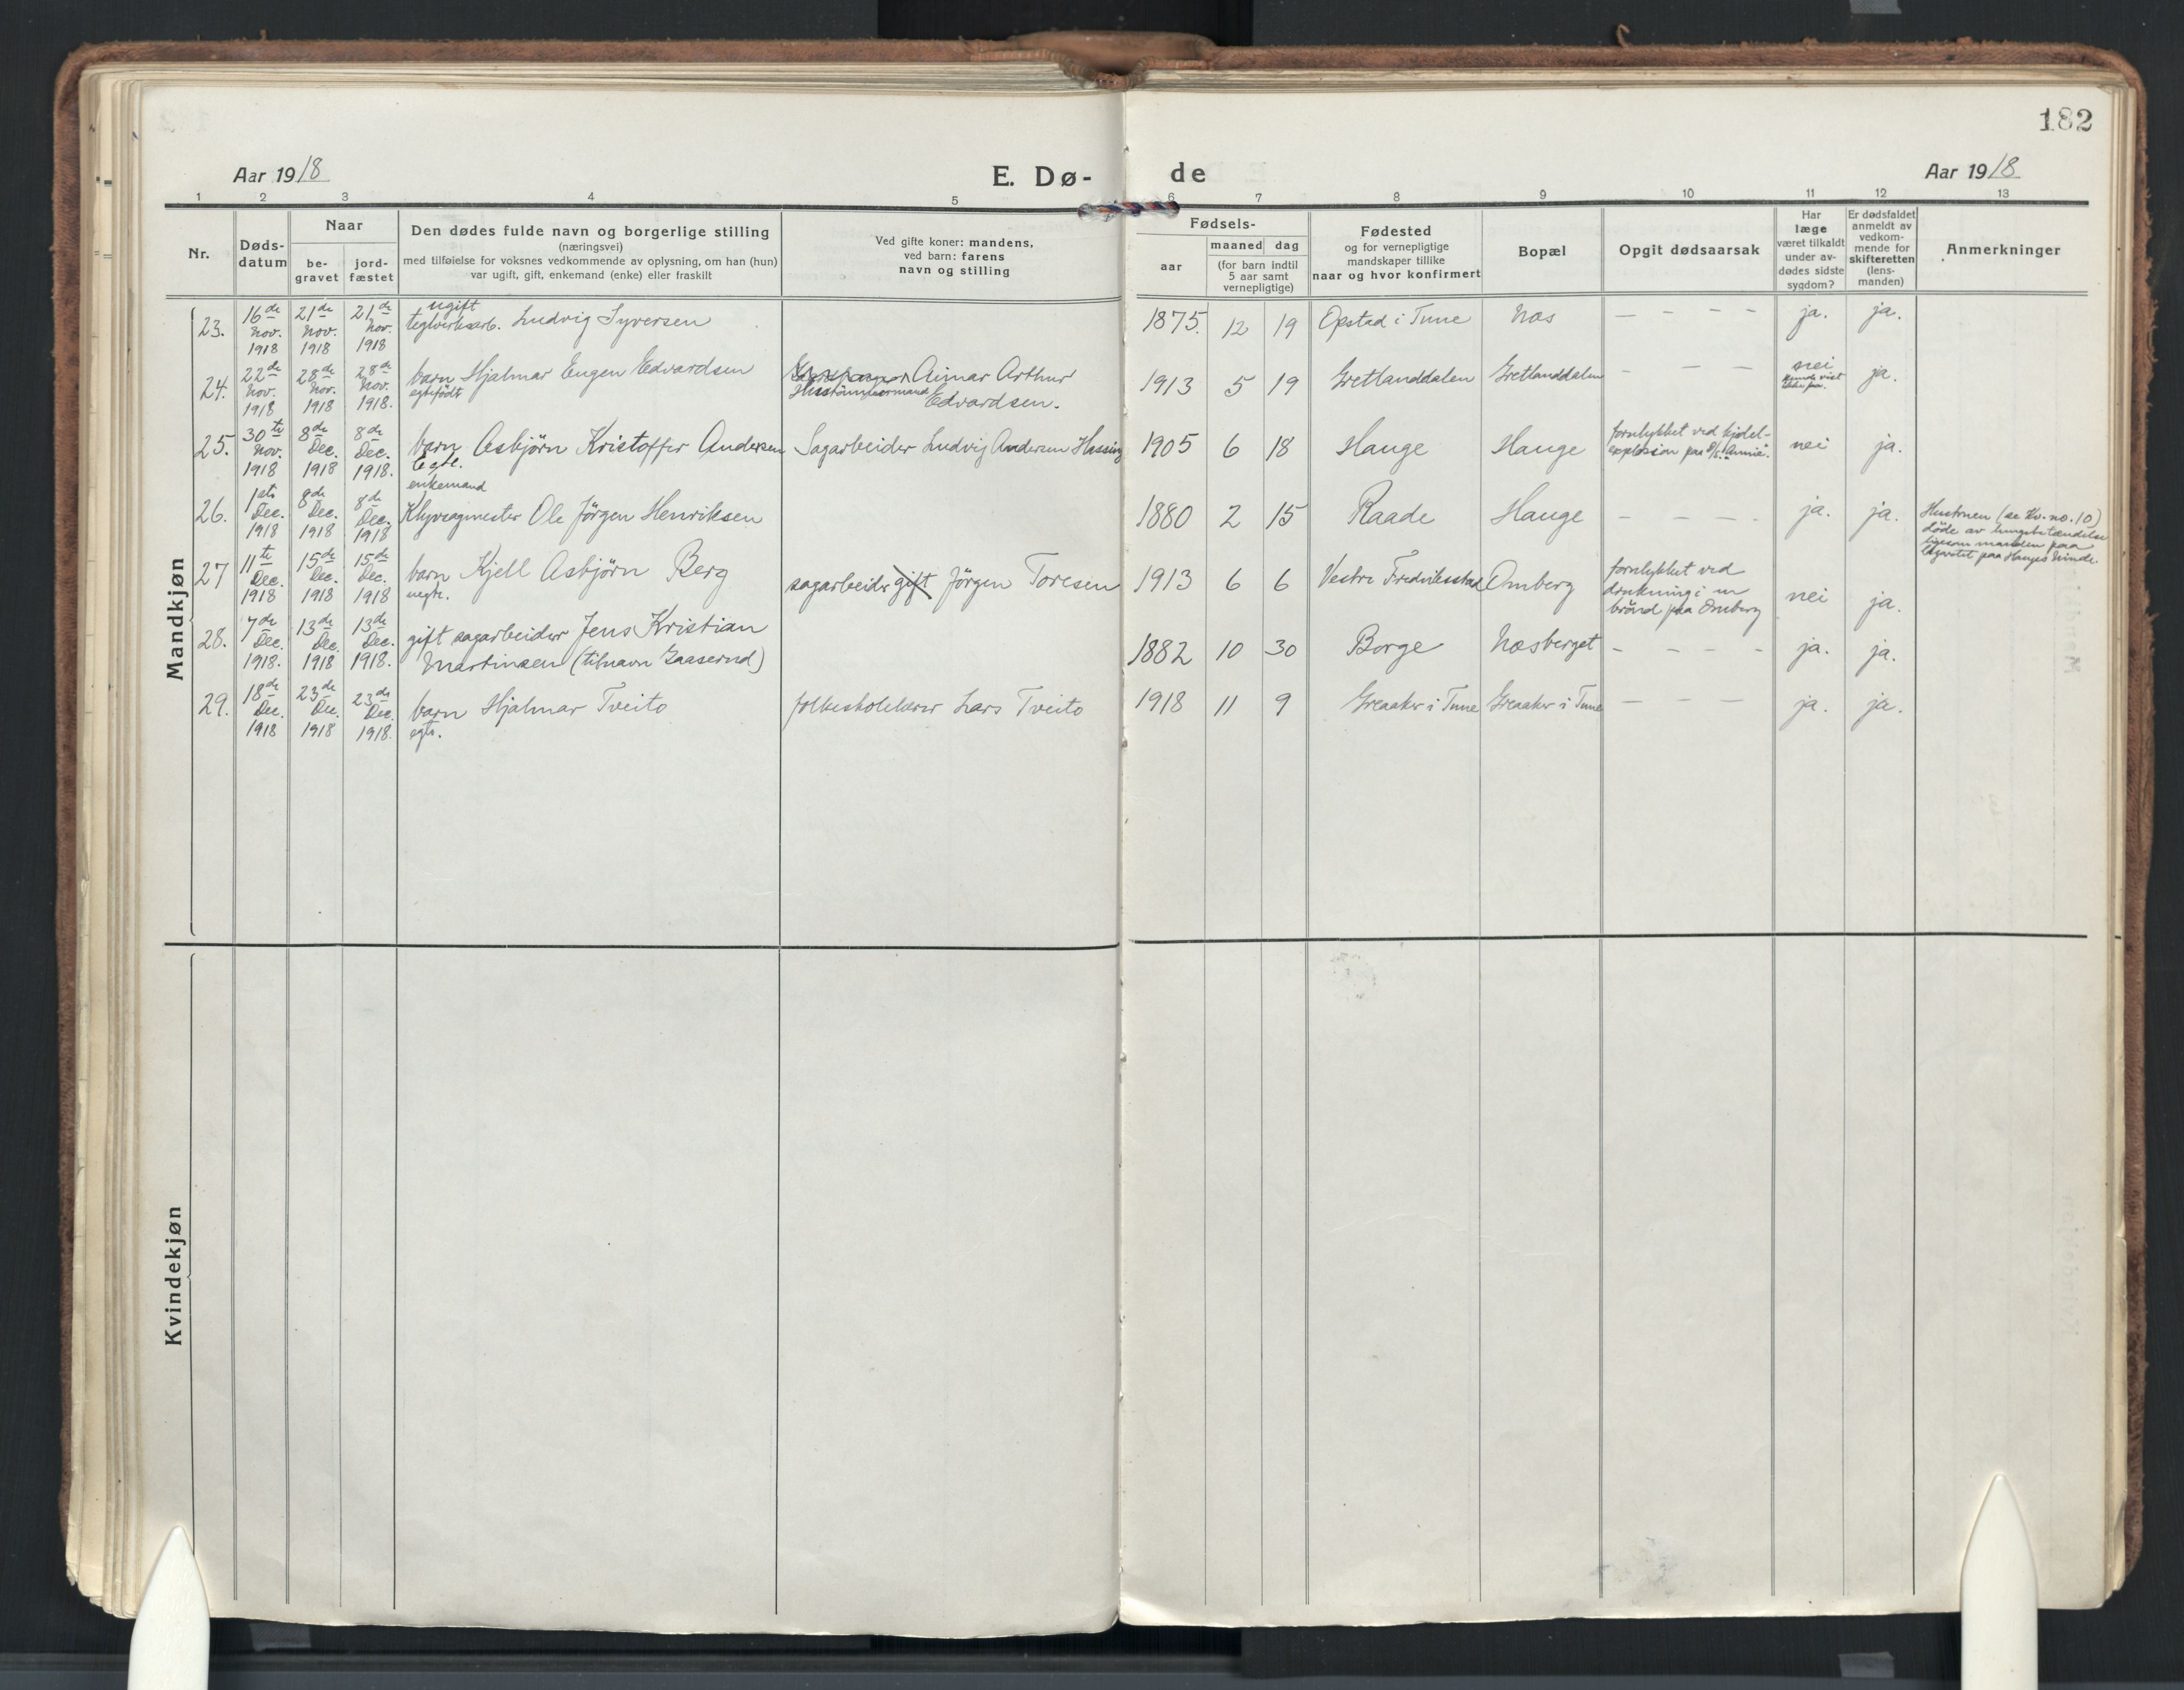 182
Aar 1918
E. Dø-
de
Aar 1918
1 2 3 4 5 6 7 8 9 10 11 12 13
Nr.
Døds-
datum
Naar
be-
gravet
jord-
fæstet
Den dødes fulde navn og borgerlige stilling
(næringsvei)
med tilføielse for voksnes vedkommende av oplysning, om han (hun)
var ugift, gift, enkemand (enke) eller fraskilt
Ved gifte koner: mandens,
ved barn: farens
navn og stilling
Fødsels-
aar
maaned dag
(for barn indtil
5 aar samt
vernepligtige)
Fødested
og for vernepligtige
mandskaper tillike
naar og hvor konfirmert
Bopæl
Opgit dødsaarsak
Har
læge
været tilkaldt
under av-
dødes sidste
sygdom?
Er dødsfaldet
anmeldt av
vedkom-
mende for
skifteretten
(lens-
manden)
Anmerkninger
Mandkjøn
23. 16de Nov. 1918 21de Nov. 1918 21de Nov. 1918 ugift
teglverksarb. Ludvig Syversen 1875. 12 19 Opstad i Tune Næs - - - - ja. ja.
24. 22de Nov. 1918 28de Nov. 1918 28de Nov. 1918. barn Hjalmar Eugen Edvardsen
egtefødt
Aimar Arthur
Hustömmermand Edvardsen. 1913 5 19 Gretlanddalen Gretlanddalen - - - - nei
ja.
25. 30te Nov. 1918 8de Dec. 1918 8de Dec. 1918. barn Asbjörn Kristoffer Andersen
egte.
Sagarbeider Ludvig Andersen Hassing 1905 6 18 Hauge Hauge forulykket ved kjedel-
explosion paa D/S. "Annie". nei ja.
26. 1ste Dec. 1918 8de Dec. 1918 8de Dec. 1918 enkemand
Klyvsagmester Ole Jörgen Henriksen 1880 2 15 Raade Hauge - - - - ja. ja. Hustruen (se Kv. no. 10)
döde av lungebetændelse
ligesom manden paa
lazarettet paa Hauges Minde.
27 11te Dec. 1918 15de Dec. 1918 15de Dec. 1918 barn Kjell Asbjörn Berg
uegte.
sagarbeider gift Jörgen Toresen 1913 6 6 Vestre Fredriksstad Omberg forulykket ved
drukning i en
brönd paa Omberg nei ja.
28. 7de Dec. 1918. 13de Dec. 1918 13de Dec. 1918. gift sagarbeider Jens Kristian
Martinsen (tilnavn Gaaserud) 1882 10 30 Borge Næsberget - - - - ja. ja.
29. 18de Dec. 1918 23de Dec. 1918 23de Dec. 1918. barn Hjalmar Tveito
egte.
folkeskolelærer Lars Tveito 1918 11 9 Greaaker i Tune Greaaker i Tune - - - ja. ja.
Kvindekjøn